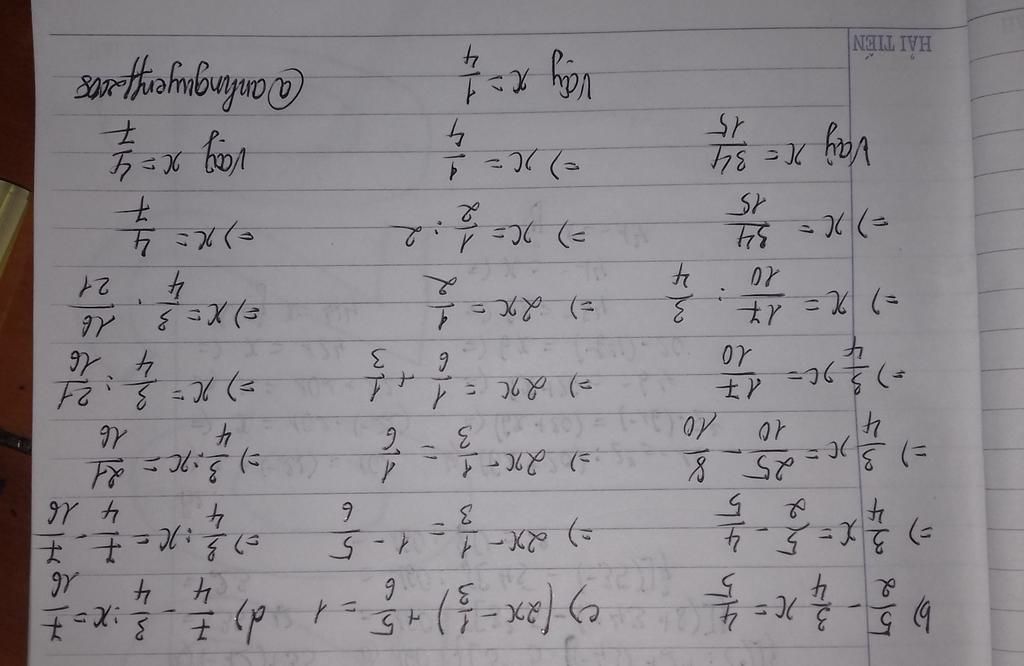 b) 5/2 - 3/4 x = 4/5
=> 3/4 x = 5/2 - 4/5
=> 3/4 x = 25/10 - 8/10
=> 3/4 x = 17/10
=> x = 17/10 : 3/4
=> x = 34/15
Vậy x = 34/15
c) (2x - 1/3) + 5/6 = 1
=> 2x - 1/3 = 1 - 5/6
=> 2x - 1/3 = 1/6
=> 2x = 1/6 + 1/3
=> 2x = 1/2
=> x = 1/2 : 2
=> x = 1/4
Vậy x = 1/4
d) 7/4 - 3/4 : x = 7/16
=> 3/4 : x = 7/4 - 7/16
=> 3/4 : x = 21/16
=> x = 3/4 : 21/16
=> x = 3/4 . 16/21
=> x = 4/7
Vậy x = 4/7
HẢI TIẾN